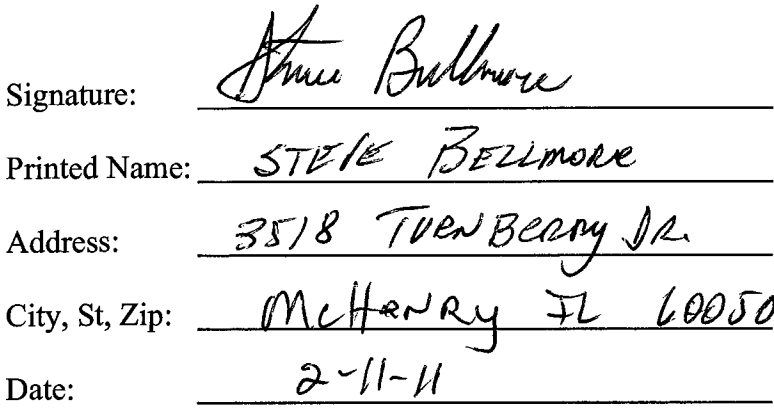 Signature: Steve Bellmore
Printed Name: STEVE BELLMORE
Address: 3518 TURNBERRY DR.
City, St, Zip: McHENRY IL 60050
Date: 2-11-11